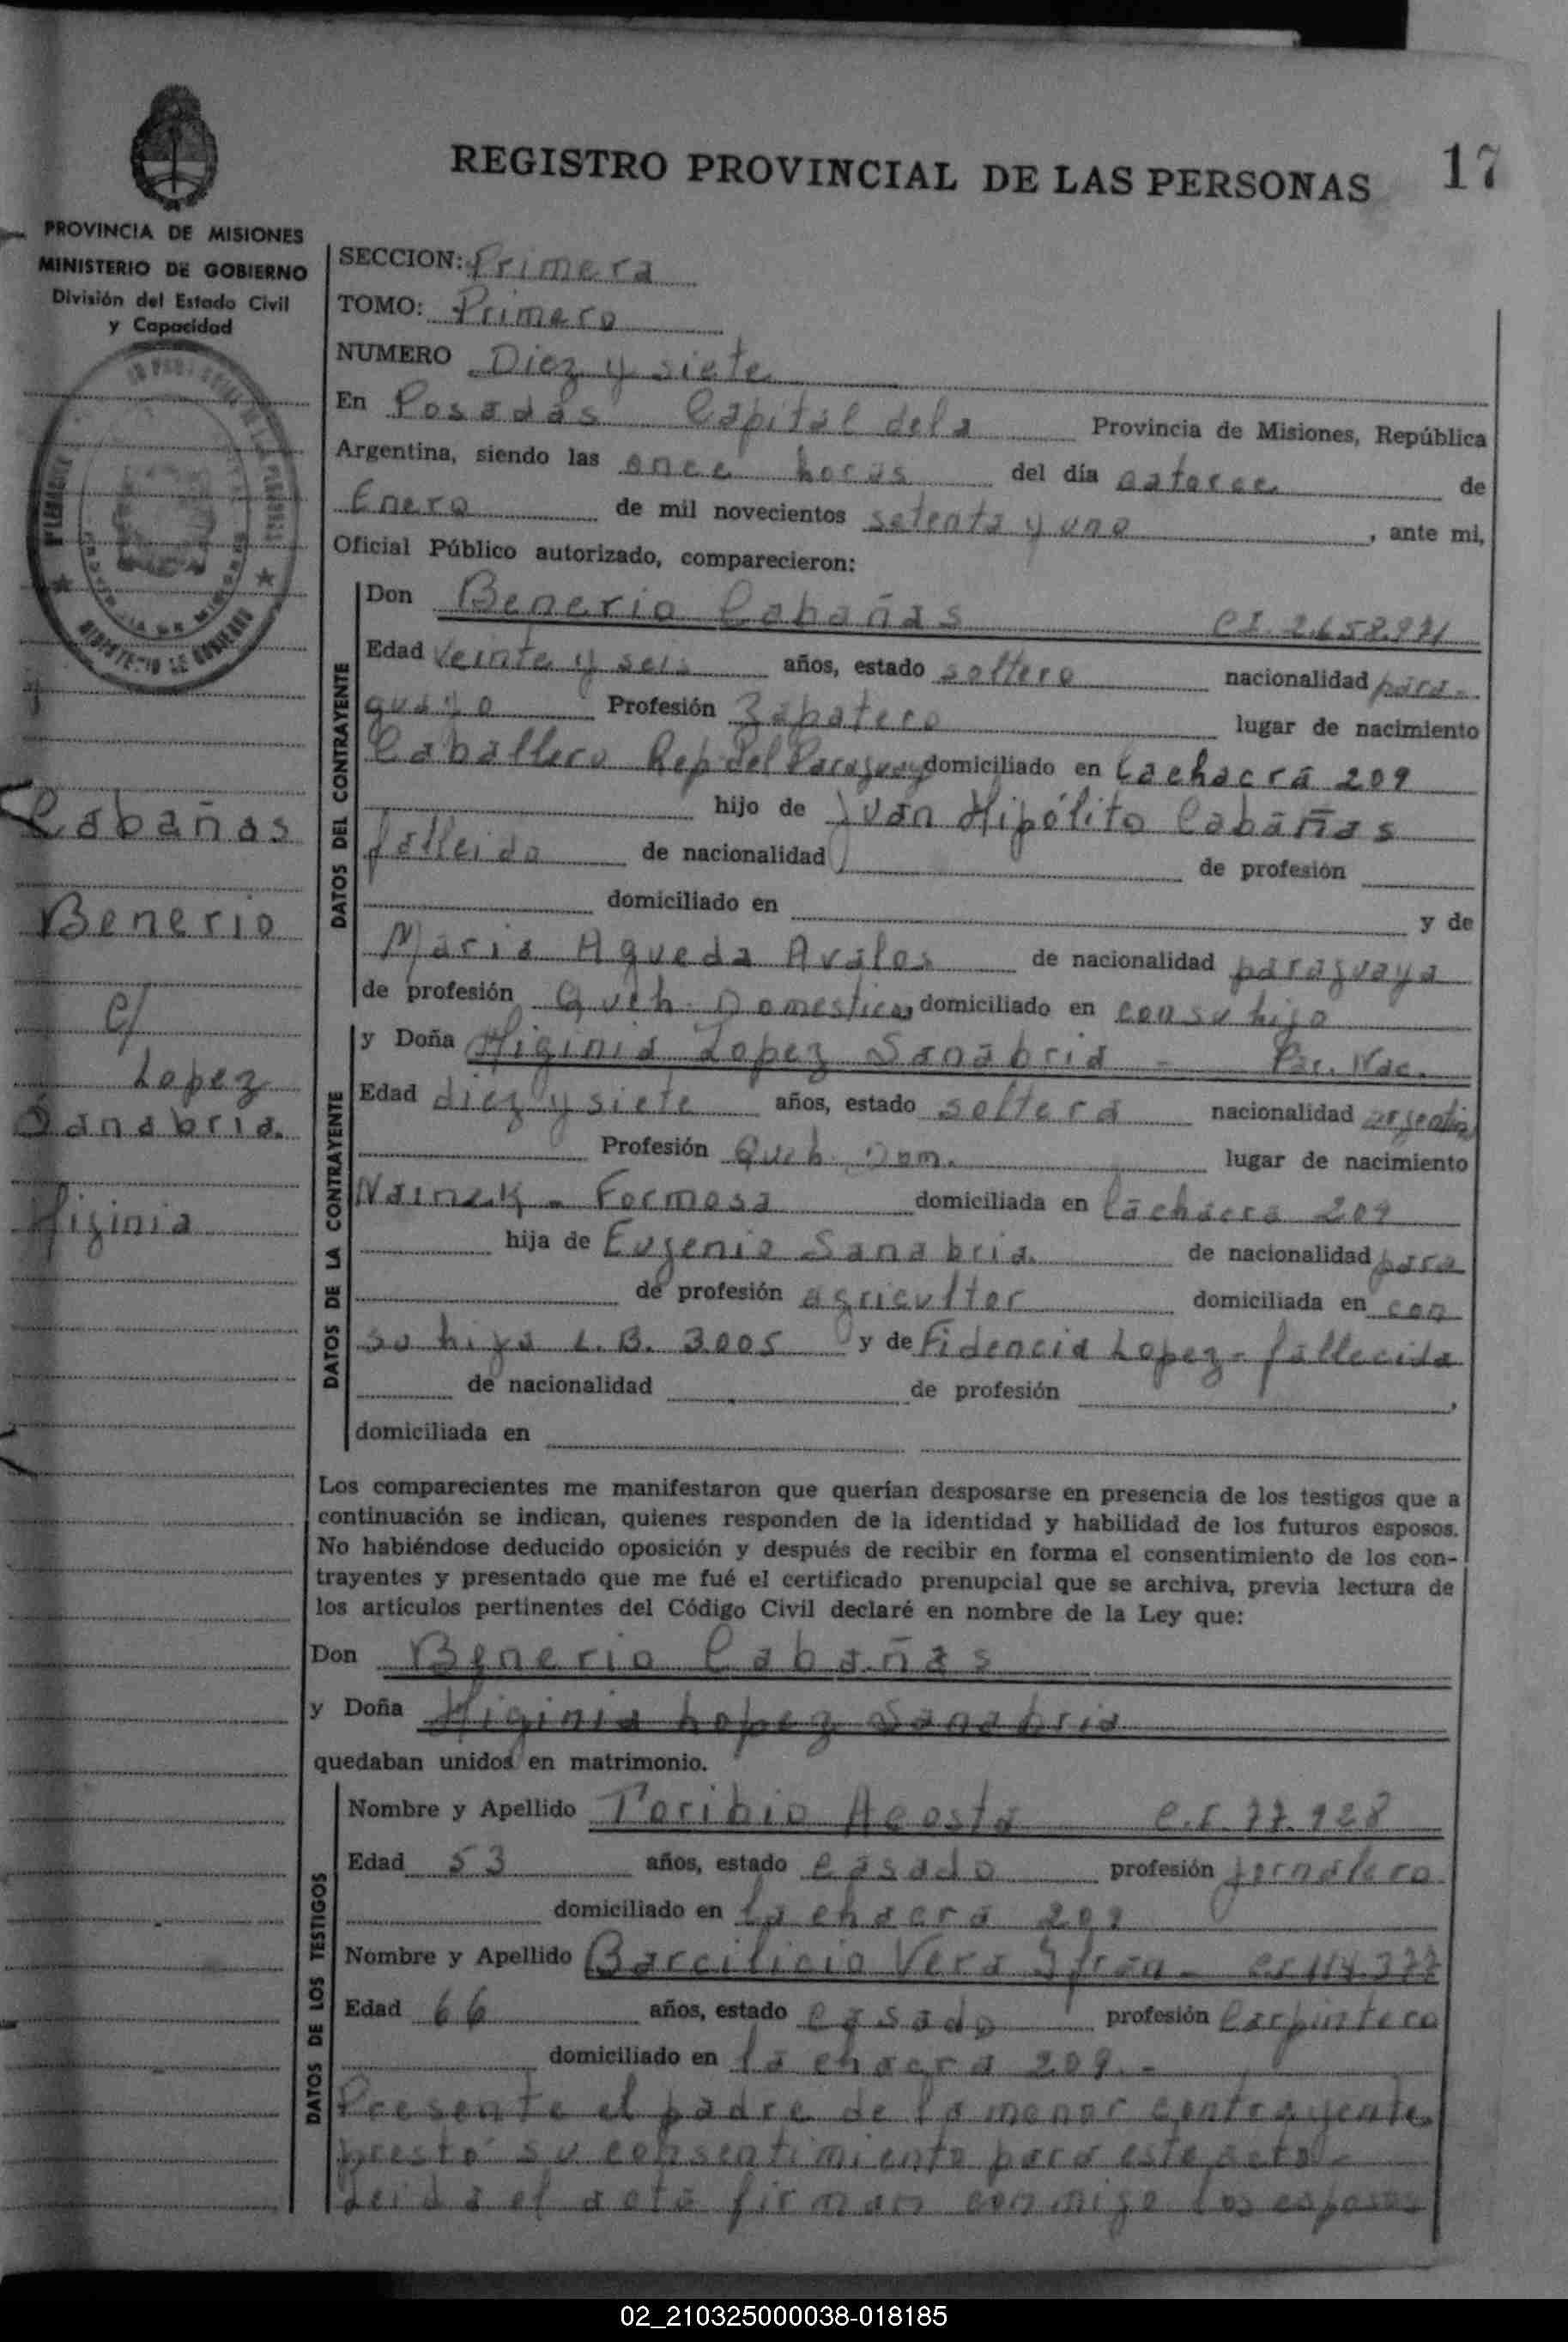 REGISTRO PROVINCIAL DE LAS PERSONAS 17
PROVINCIA DE MISIONES
MINISTERIO DE GOBIERNO
División del Estado Civil
y Capacidad
Cabañas
Benerio
c/
Lopez
Sanabria.
Higinia
SECCION: Primera
TOMO: Primero
NUMERO Diez y siete
En Posadas Capital de la Provincia de Misiones, República
Argentina, siendo las once horas del día catorce de
Enero de mil novecientos setenta y uno, ante mi,
Oficial Público autorizado, comparecieron:
DATOS DEL CONTRAYENTE
Don Benerio Cabañas CI. 2.658.971
Edad veinte y seis años, estado soltero nacionalidad para-
guayo Profesión Zapatero lugar de nacimiento
Caballero Rep del Paraguay domiciliado en La chacra 209
hijo de Juan Hipólito Cabañas
falleido de nacionalidad de profesión
domiciliado en y de
Maria Agueda Avalos de nacionalidad paraguaya
de profesión Queh. Domesticos domiciliado en con su hijo
DATOS DE LA CONTRAYENTE
y Doña Higinia Lopez Sanabria - Par. Nac.
Edad diez y siete años, estado soltera nacionalidad argentina
Profesión Queh. Dom. lugar de nacimiento
Formosa domiciliada en La chacra 209
hija de Eugenio Sanabria. de nacionalidad para
de profesión agricultor domiciliada en con
su hija L.B. 3005 y de Fidencia Lopez - fallecida
de nacionalidad de profesión ,
domiciliada en
Los comparecientes me manifestaron que querían desposarse en presencia de los testigos que a
continuación se indican, quienes responden de la identidad y habilidad de los futuros esposos.
No habiéndose deducido oposición y después de recibir en forma el consentimiento de los con-
trayentes y presentado que me fué el certificado prenupcial que se archiva, previa lectura de
los artículos pertinentes del Código Civil declaré en nombre de la Ley que:
Don Benerio Cabañas
y Doña Higinia Lopez Sanabria
quedaban unidos en matrimonio.
DATOS DE LOS TESTIGOS
Nombre y Apellido Toribio Acosta C.I. 77.928
Edad 53 años, estado casado profesión jornalero
domiciliado en La chacra 209
Nombre y Apellido Barcilicio Vera Ifran - CI 114.377
Edad 66 años, estado casado profesión Carpintero
domiciliado en la chacra 209. -
Presente el padre de la menor contrayente
prestó su consentimiento para este acto -
Leida el acta firman conmigo los esposos
02_210325000038-018185